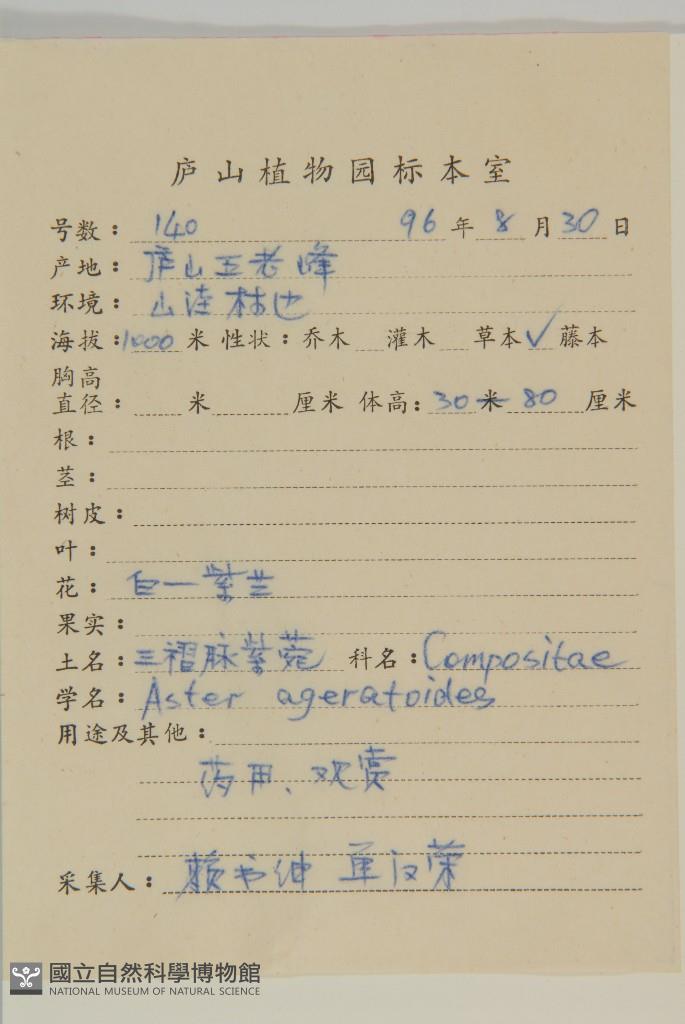 庐山植物园标本室
号数: 140 96年8月30日
产地: 庐山五老峰
环境: 山洼林边
海拔:1000米 性状:乔木 灌木 草本✓ 藤本
胸高
直径: 米 厘米 体高: 30米 80 厘米
根:
茎:
树皮:
叶:
花: 白一紫兰
果实:
土名:三褶脉紫菀 科名:Compositae
学名:Aster ageratoides
用途及其他:
药用、观赏
采集人: 赖书绅 单汉荣
國立自然科學博物館
NATIONAL MUSEUM OF NATURAL SCIENCE